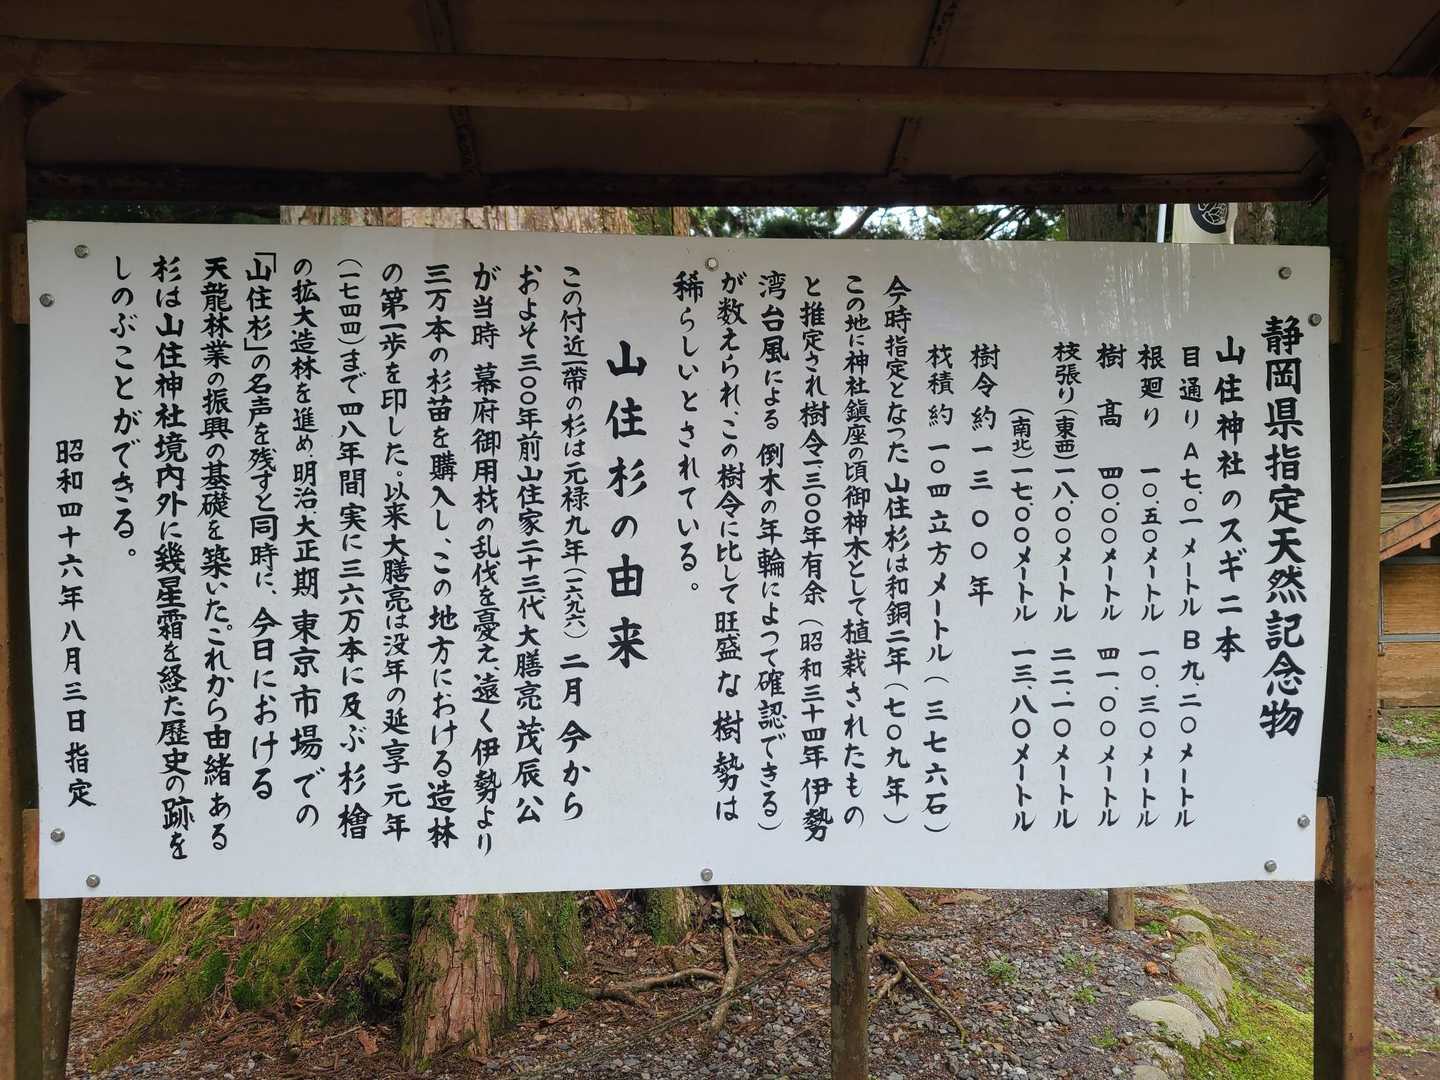 静岡県指定天然記念物
山住神社のスギ二本
目通り A七.〇一メートル B九.二〇メートル
根廻り 一〇.五〇メートル 一〇.三〇メートル
樹高 四〇.〇〇メートル 四一.〇〇メートル
枝張り(東西)一八.〇〇メートル 二二.一〇メートル
(南北)一七.〇〇メートル 一三.八〇メートル
樹令 約 一三〇〇年
材積 約 一〇四立方メートル(三七六石)
今時指定となった山住杉は和銅二年(七〇九年)
この地に神社鎮座の頃御神木として植栽されたもの
と推定され樹令一、三〇〇年有余(昭和三十四年伊勢
湾台風による 倒木の年輪によつて確認できる)
が数えられ、この樹令に比して旺盛な樹勢は
稀らしいとされている。
山住杉の由来
この付近一帯の杉は元禄九年(一六九六)二月 今から
およそ三〇〇年前山住家二十三代大膳亮茂辰公
が当時 幕府御用材の乱伐を憂え、遠く伊勢より
三万本の杉苗を購入し、この地方における造林
の第一歩を印した。以来大膳亮は没年の延享元年
(一七四四)まで四八年間実に三六万本に及ぶ杉檜
の拡大造林を進め、明治、大正期 東京市場での
「山住杉」の名声を残すと同時に、今日における
天龍林業の振興の基礎を築いた。これから由緒ある
杉は山住神社境内外に幾星霜を経た歴史の跡を
しのぶことができる。
昭和四十六年八月三日指定